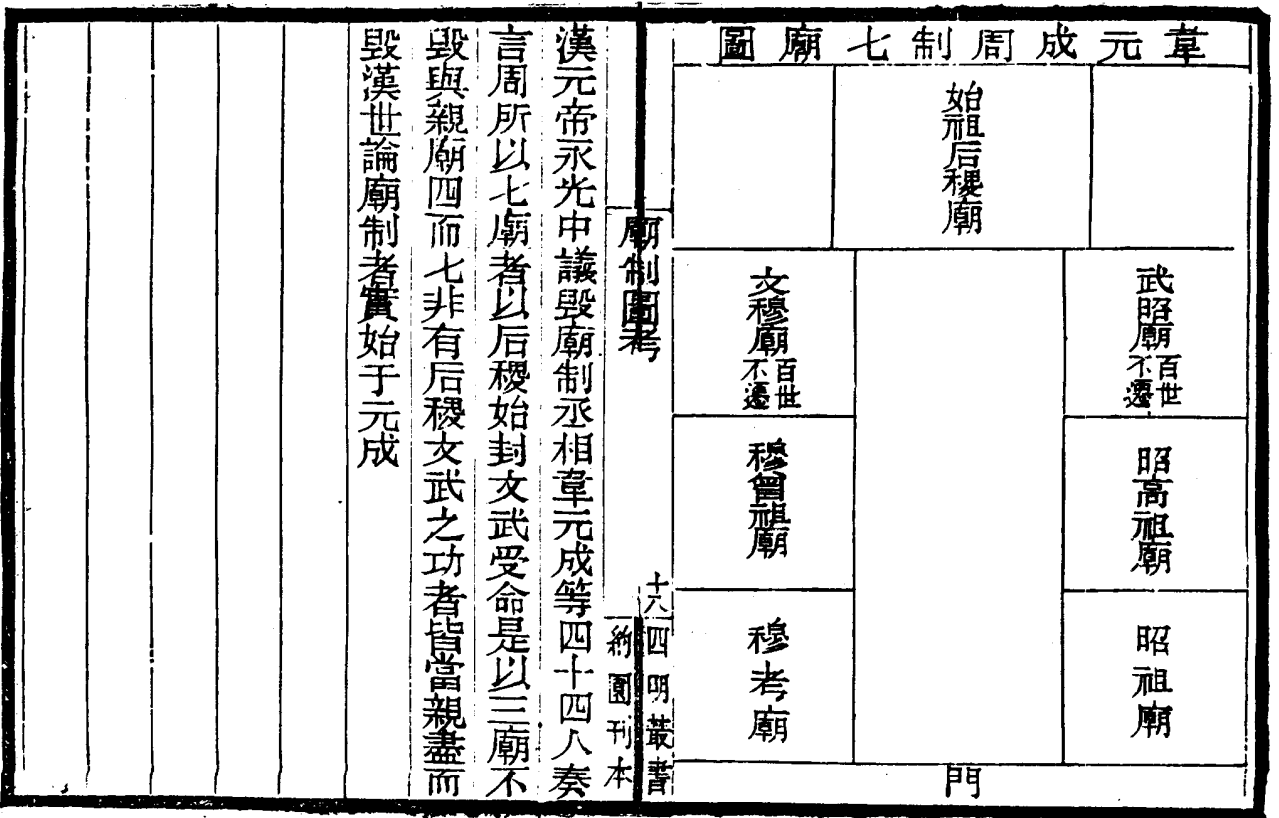 韋元成周制七廟圖
始祖后稷廟
武昭廟百世不遷
昭高祖廟
昭祖廟
文穆廟百世不遷
穆曾祖廟
穆考廟
門
廟制圖考
十六
四明叢書
約園刊本
漢元帝永光中議毀廟制丞相韋元成等四十四人奏
言周所以七廟者以后稷始封文武受命是以三廟不
毀與親廟四而七非有后稷文武之功者皆當親盡而
毀漢世論廟制者實始于元成